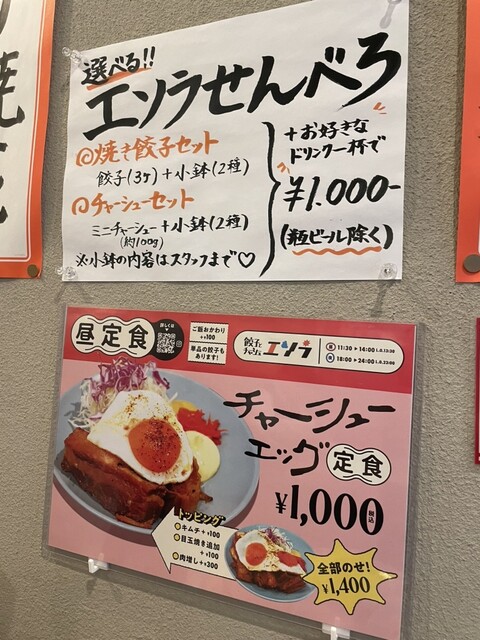 選べる!!
エソラせんべろ
◎焼き餃子セット
餃子(3ヶ)+小鉢(2種)
◎チャーシューセット
ミニチャーシュー+小鉢(2種)
(約100g)
※小鉢の内容はスタッフまで♡
+お好きな
ドリンク一杯で
¥1.000-
(瓶ビール除く)
昼定食
詳しくは
ご飯おかわり
+¥100
単品の餃子も
あります!
餃子と
チャーシュー
エソラ
昼 11:30▶14:00 L.O.13:30
夜 18:00▶24:00 L.O.23:00
チャーシュー
エッグ定食
¥1,000税込
トッピング
キムチ+¥100
目玉焼き追加
+¥100
肉増し+¥300
全部のせ!
¥1,400